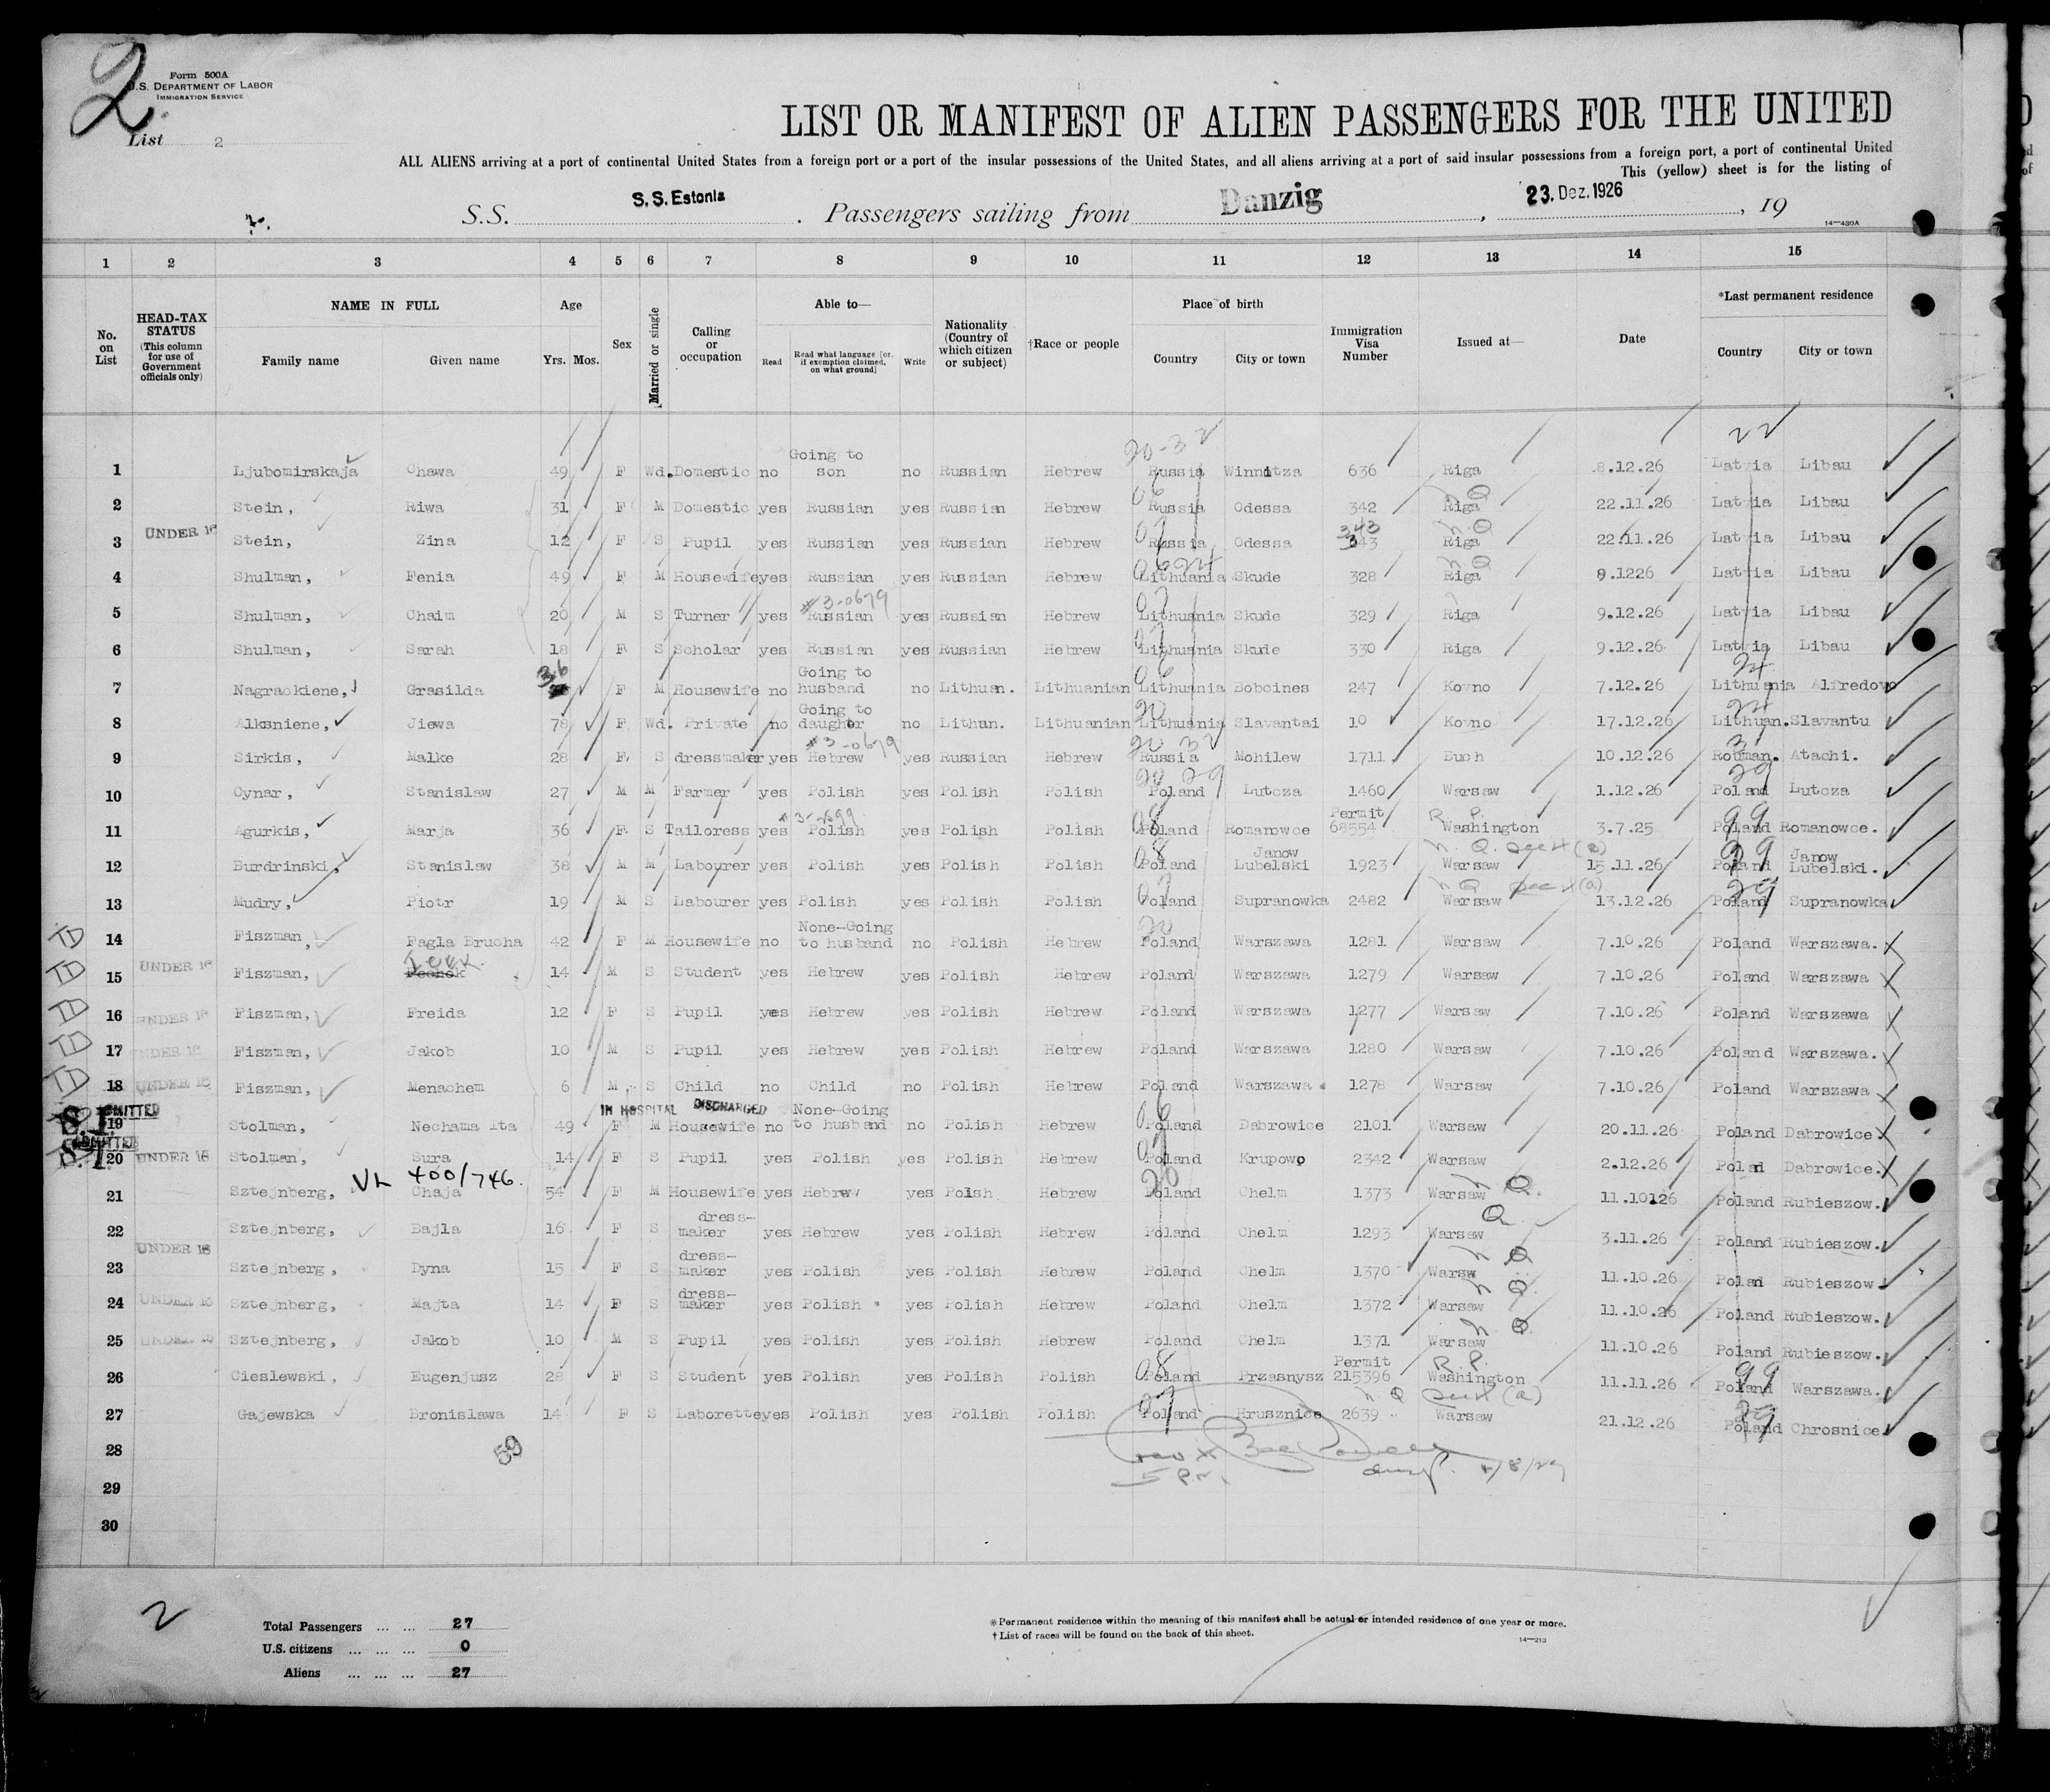 2
Form 500A
U.S. DEPARTMENT OF LABOR
IMMIGRATION SERVICE
List 2
LIST OR MANIFEST OF ALIEN PASSENGERS FOR THE UNITED
ALL ALIENS arriving at a port of continental United States from a foreign port or a port of the insular possessions of the United States, and all aliens arriving at a port of said insular possessions from a foreign port, a port of continental United
This (yellow) sheet is for the listing of
S.S. S.S. Estonia. Passengers sailing from Danzig, 23. Dez. 1926, 19
14—430A
1 2 3 4 5 6 7 8 9 10 11 12 13 14 15
No. on List
HEAD-TAX STATUS (This column for use of Government officials only)
NAME IN FULL Family name Given name
Age Yrs. Mos.
Sex
Married or single
Calling or occupation
Able to— Read Read what language [or, if exemption claimed, on what ground] Write
Nationality (Country of which citizen or subject)
†Race or people
Place of birth Country City or town
Immigration Visa Number
Issued at—
Date
*Last permanent residence Country City or town
20-32 22
1 Ljubomirskaja Chawa 49 F Wd. Domestic no Going to son no Russian Hebrew Russia Winnitza 636 Riga 8.12.26 Latvia Libau
2 Stein, Riwa 31 F M Domestic yes Russian yes Russian Hebrew Russia Odessa 342 Riga 22.11.26 Latvia Libau
3 UNDER 16 Stein, Zina 12 F S Pupil yes Russian yes Russian Hebrew Russia Odessa 343 Riga 22.11.26 Latvia Libau
4 Shulman, Fenia 49 F M Housewife yes Russian yes Russian Hebrew Lithuania Skude 328 Riga 9.1226 Latvia Libau
5 Shulman, Chaim 20 M S Turner yes #3-0679 Russian yes Russian Hebrew Lithuania Skude 329 Riga 9.12.26 Latvia Libau
6 Shulman, Sarah 18 F S Scholar yes Russian yes Russian Hebrew Lithuania Skude 330 Riga 9.12.26 Latvia Libau
7 Nagrackiene, Grasilda 36 F M Housewife no Going to husband no Lithuan. Lithuanian Lithuania Bobcines 247 Kovno 7.12.26 Lithuania Alfredovo
8 Alksniene, Jiewa 78 F Wd. Private no Going to daughter no Lithun. Lithuanian Lithuania Slavantai 10 Kovno 17.12.26 Lithuan. Slavantu
9 Sirkis, Malke 28 F S dressmaker yes #3-0679 Hebrew yes Russian Hebrew Russia Mohilew 1711 Buch 10.12.26 Rouman. Atachi.
10 Cynar, Stanislaw 27 M M Farmer yes Polish yes Polish Polish Poland Lutcza 1460 Warsaw 1.12.26 Poland Lutcza
11 Agurkis, Marja 36 F S Tailoress yes Polish yes Polish Polish Poland Romanowce Permit 68554 R.P. Washington 3.7.25 Poland Romanowce.
12 Burdrinski, Stanislaw 38 M M Labourer yes Polish yes Polish Polish Poland Janow Lubelski 1923 Warsaw 15.11.26 Poland Janow Lubelski.
13 Mudry, Piotr 19 M S Labourer yes Polish yes Polish Polish Poland Supranowka 2482 Warsaw 13.12.26 Poland Supranowka
14 Fiszman, Fagla Brucha 42 F M Housewife no None-Going to husband no Polish Hebrew Poland Warszawa 1281 Warsaw 7.10.26 Poland Warszawa.
15 UNDER 16 Fiszman, 14 M S Student yes Hebrew yes Polish Hebrew Poland Warszawa 1279 Warsaw 7.10.26 Poland Warszawa
16 UNDER 16 Fiszman, Freida 12 F S Pupil yes Hebrew yes Polish Hebrew Poland Warszawa 1277 Warsaw 7.10.26 Poland Warszawa
17 UNDER 16 Fiszman, Jakob 10 M S Pupil yes Hebrew yes Polish Hebrew Poland Warszawa 1280 Warsaw 7.10.26 Poland Warszawa.
18 UNDER 16 Fiszman, Menachem 6 M S Child no Child no Polish Hebrew Poland Warszawa 1278 Warsaw 7.10.26 Poland Warszawa
ADMITTED S.I. IN HOSPITAL DISCHARGED
19 Stolman, Nechama Ita 49 F M Housewife no None-Going to husband no Polish Hebrew Poland Dabrowice 2101 Warsaw 20.11.26 Poland Dabrowice
ADMITTED S.I.
20 UNDER 16 Stolman, Sura 14 F S Pupil yes Polish yes Polish Hebrew Poland Krupowo 2342 Warsaw 2.12.26 Polad Dabrowice.
VL 400/746.
21 Sztejnberg, Chaja 54 F M Housewife yes Hebrew yes Polsh Hebrew Poland Chelm 1373 Warsaw 11.10126 Poland Rubieszow.
22 Sztejnberg, Bajla 16 F S dress-maker yes Hebrew yes Polish Hebrew Poland Chelm 1293 Warsaw 3.11.26 Poland Rubieszow.
23 UNDER 16 Sztejnberg, Dyna 15 F S dress-maker yes Polish yes Polish Hebrew Poland Chelm 1370 Warsw 11.10.26 Polan Rubieszow.
24 UNDER 16 Sztejnberg, Majta 14 F S dress-maker yes Polish yes Polish Hebrew Poland Chelm 1372 Warsaw 11.10.26 Poland Rubieszow.
25 UNDER 16 Sztejnberg, Jakob 10 M S Pupil yes Polish yes Polish Hebrew Poland Chelm 1371 Warsaw 11.10.26 Poland Rubieszow.
26 Cieslewski, Eugenjusz 28 F S Student yes Polish yes Polish Polish Poland Przasnysz Permit 215396 R.P. Washington 11.11.26 Poland Warszawa.
27 Gajewska Bronislawa 14 F S Laborette yes Polish yes Polish Polish Poland Hrusznice 2639 Warsaw 21.12.26 Poland Chrosnice
28 59
29
30
2
Total Passengers ... ... 27
U.S. citizens ... ... ... 0
Aliens ... ... ... 27
*Permanent residence within the meaning of this manifest shall be actual or intended residence of one year or more.
†List of races will be found on the back of this sheet.
14—213